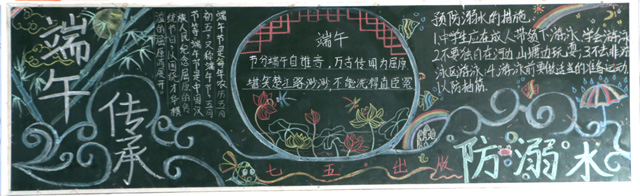 端午
传承
端午节是每年农历五月
初五,又称端午节、五月
节等。端午节是中国汉
族人民纪念屈原的
传统节日,以围绕才华横
溢的屈原而展开,
端午
节分端午自谁言,万古传闻为屈原
堪笑楚江空渺渺,不能洗得直臣冤
预防溺水的措施
1.中学生应在成人带领下游泳,学会游泳
2.不要独自在河边、山塘边玩耍;3.不去非游
泳区游泳;4.游泳前要做适当的准备运动,
以防抽筋。
七五出版
防溺水